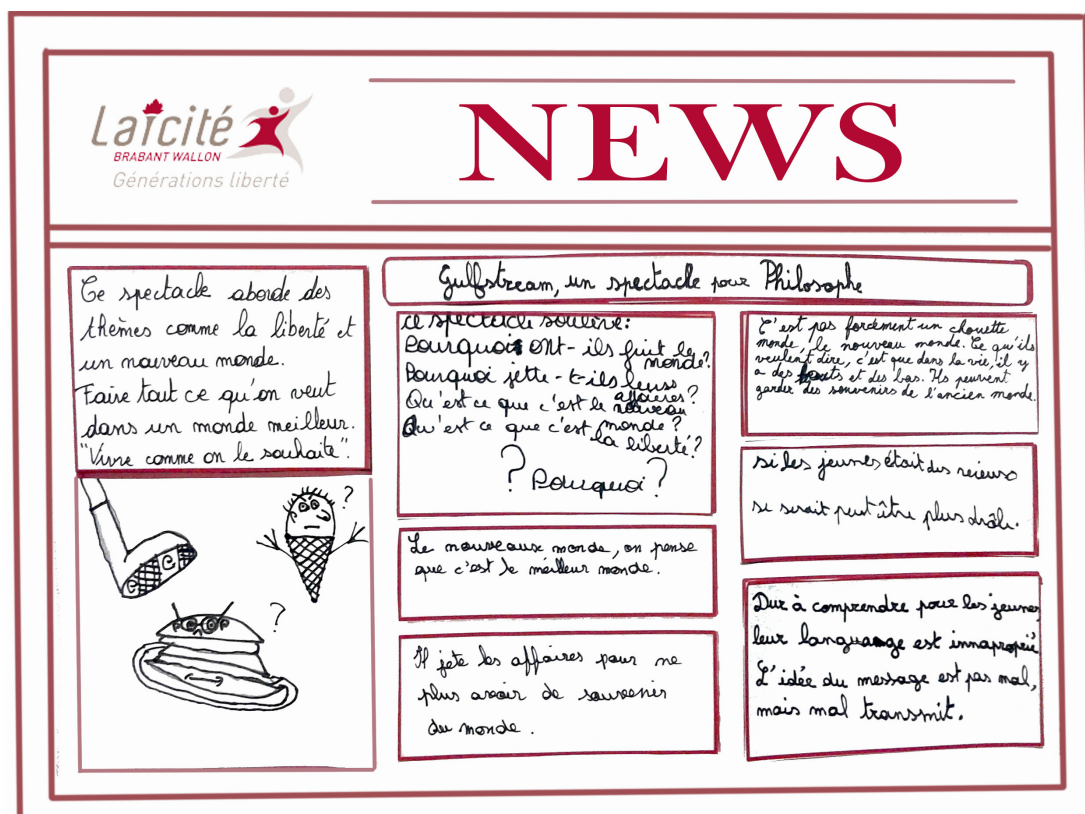 Laïcité
BRABANT WALLON
Générations liberté
NEWS
Ce spectacle aborde des
thèmes comme la liberté et
un nouveau monde.
Faire tout ce qu'on veut
dans un monde meilleur.
"Vivre comme on le souhaite".
?
?
Gulfstream, un spectacle pour Philosophe
ce spectacle soulève:
Pourquoi ont-ils fuit le
monde?
Pourquoi jette-t-ils leurs
affaires?
Qu'est ce que c'est le nouveau
monde?
Qu'est ce que c'est
la liberté?
? Pourquoi ?
Le nouveaux monde, on pense
que c'est le meilleur monde.
Il jete les affaires pour ne
plus avoir de souvenir
du monde.
C'est pas forcément un chouette
monde, le nouveau monde. Ce qu'ils
veulent dire, c'est que dans la vie, il y
a des hauts et des bas. Ils peuvent
garder des souvenirs de l'ancien monde.
si les jeunes était des
se serait peut être plus drôle.
Dur à comprendre pour les jeunes,
leur languange est innaproprié
L'idée du message est pas mal,
mais mal transmit.